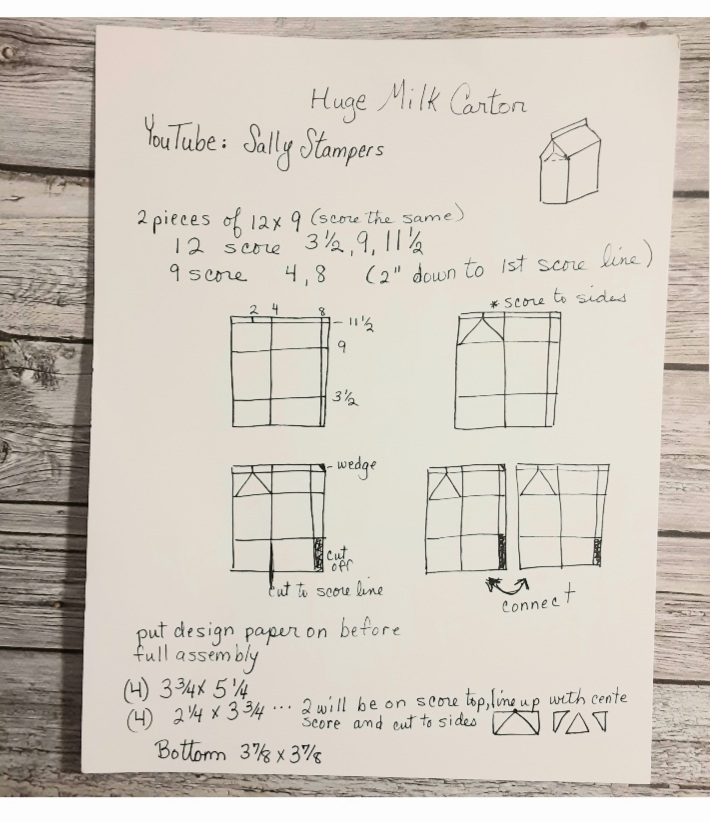 Huge Milk Carton
YouTube: Sally Stampers
2 pieces of 12 x 9 (score the same)
12 score 3 1/2, 9, 11 1/2
9 score 4, 8 (2" down to 1st score line)
* score to sides
2 4 8
11 1/2
9
3 1/2
- wedge
cut off
Cut to score line
connect
put design paper on before
full assembly
(4) 3 3/4 x 5 1/4
(4) 2 1/4 x 3 3/4 ... 2 will be on score top, line up with cente
score and cut to sides
Bottom 3 7/8 x 3 7/8